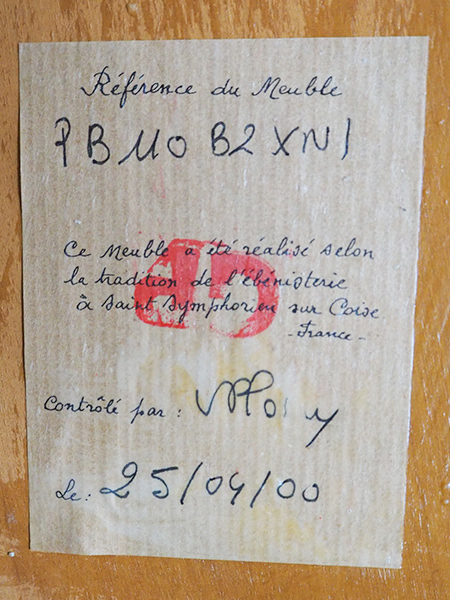 Référence du Meuble
PB110 B2XN1
Ce Meuble a été réalisé selon
la tradition de l'ébénisterie
à Saint Symphorien sur Coise
-France-
Contrôlé par :
Le : 25/04/00